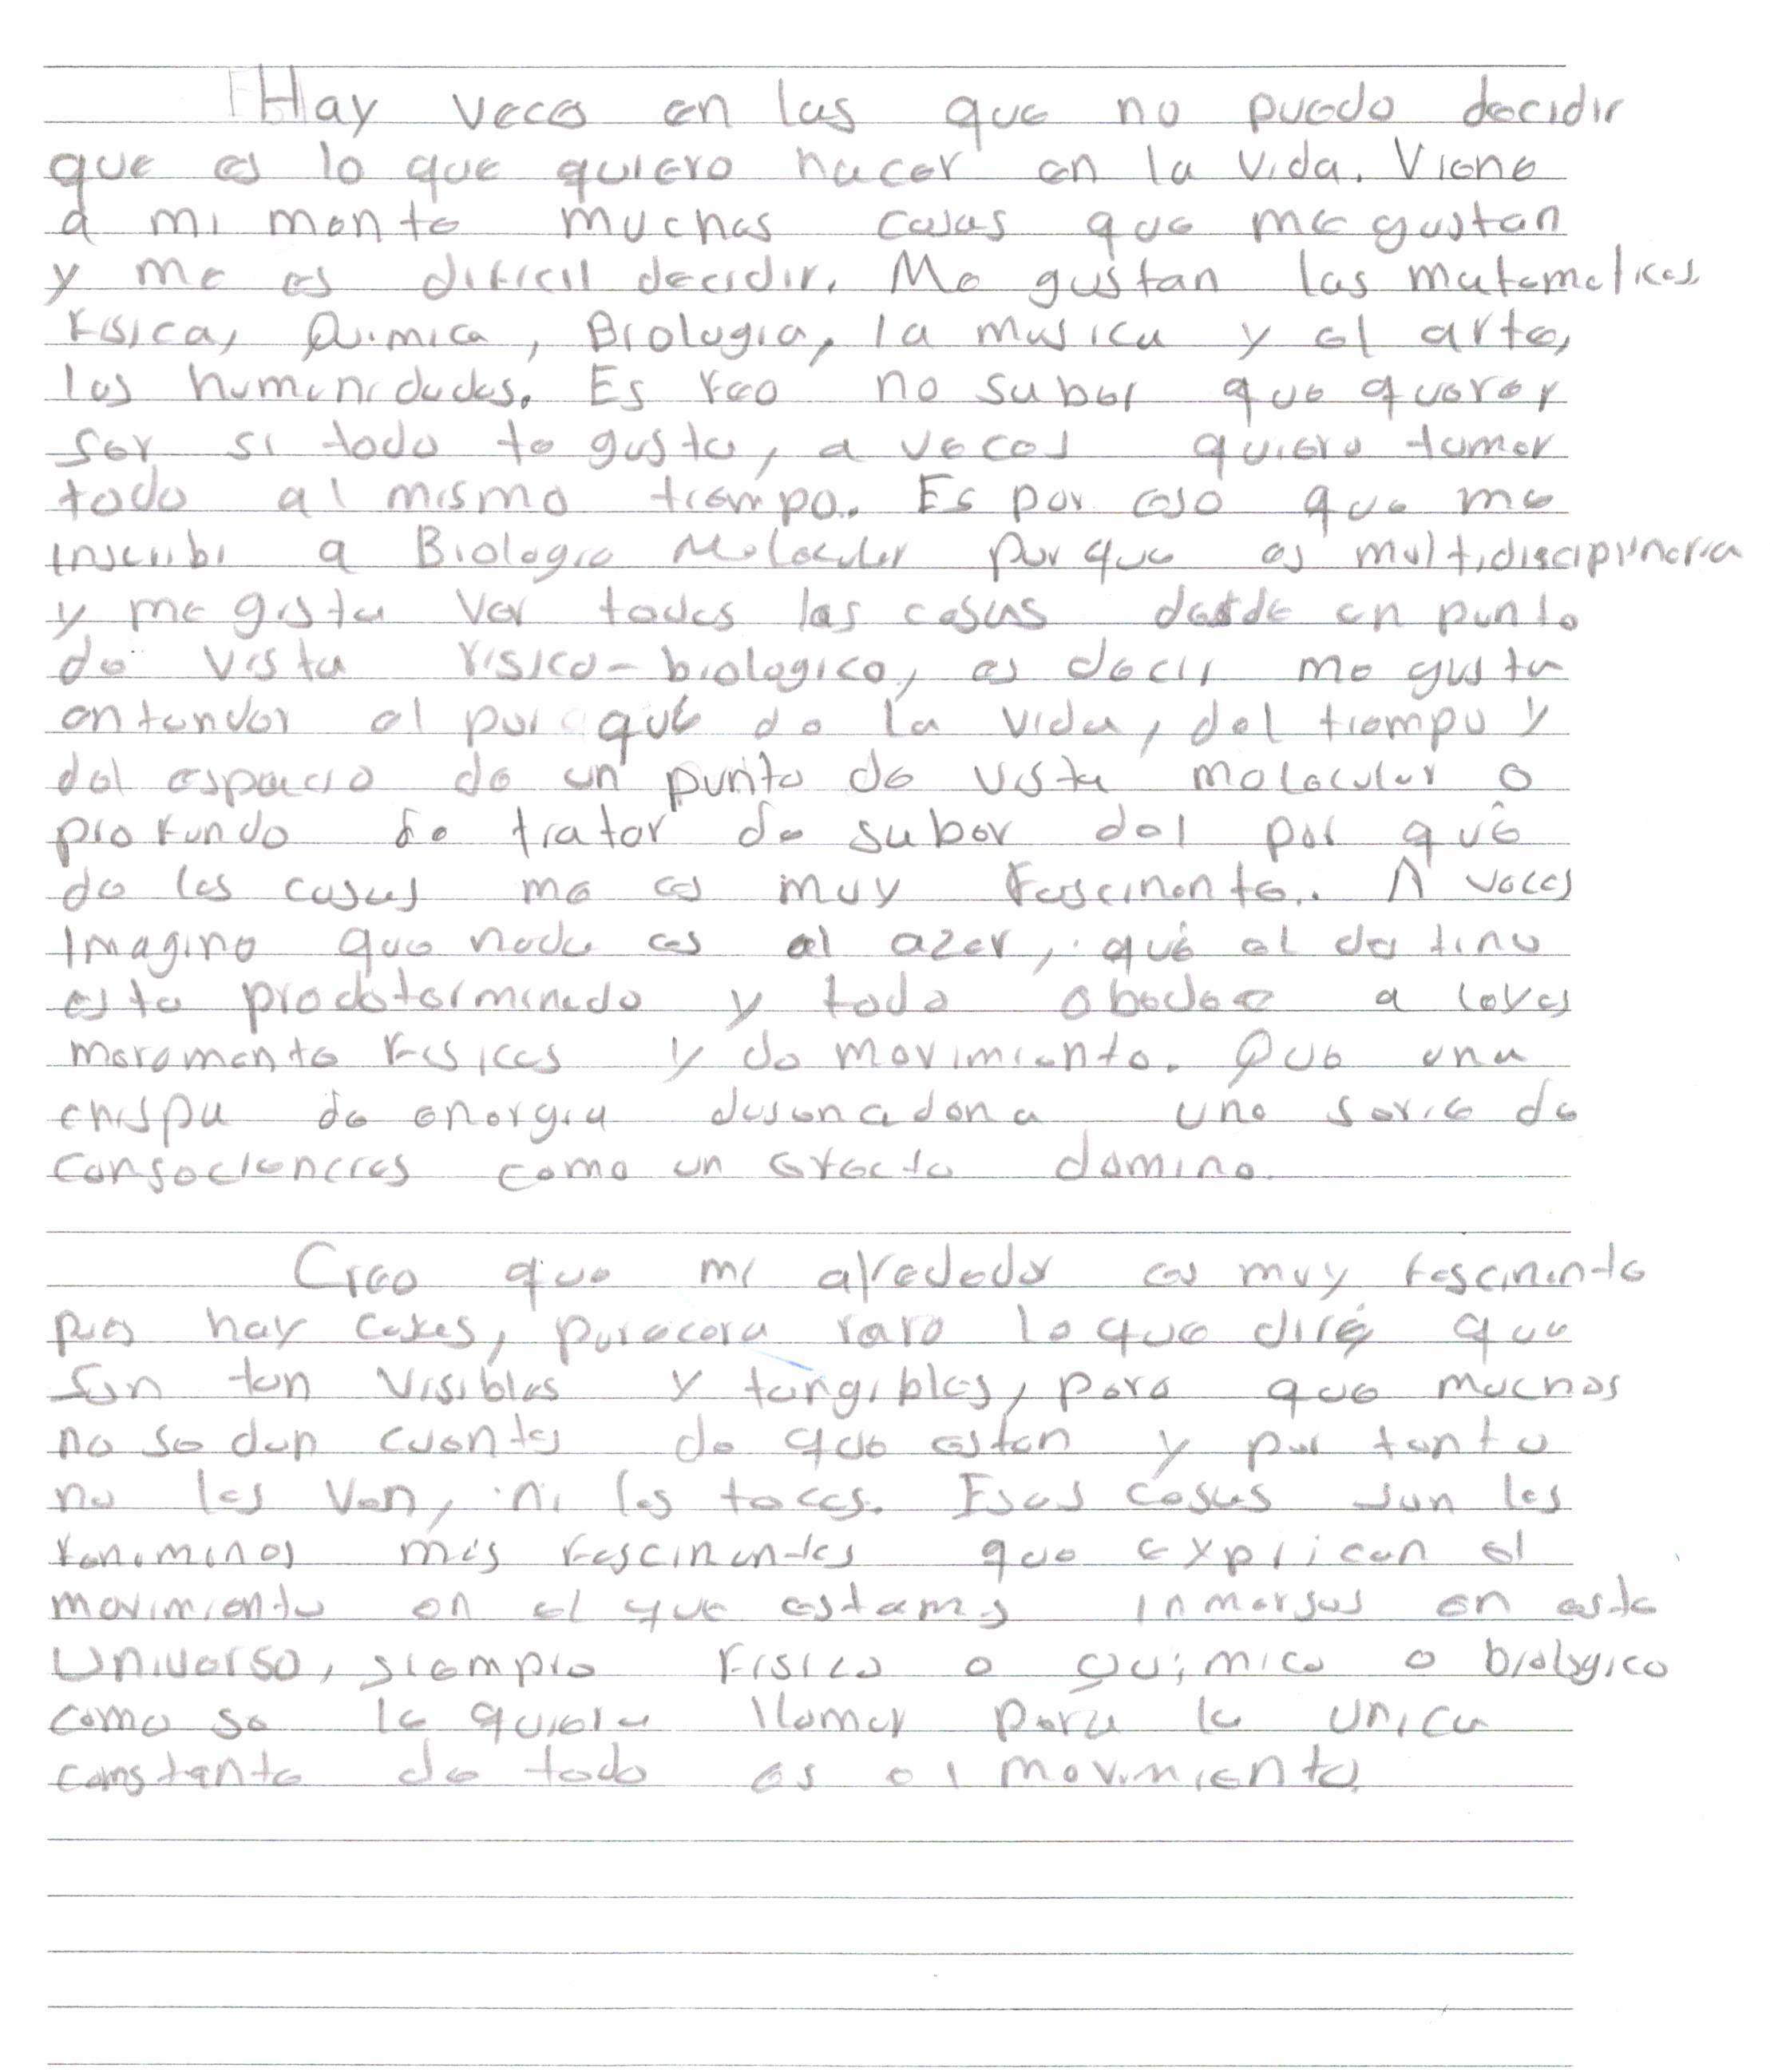 Hay veces en las que no puedo decidir
que es lo que quiero hacer en la vida. Viene
a mi mente muchas cosas que me gustan
y me es dificil decidir. Me gustan las matematicas,
Fisica, Quimica, Biologia, la musica y el arte,
las humanidades. Es feo no saber que querer
ser si todo te gusta, a veces quiero tomar
todo al mismo tiempo. Es por eso que me
inscribi a Biologia Molecular porque es multidisciplinaria
y me gusta ver todas las cosas desde en punto
de vista fisico-biologico, es decir me gusta
entender el por qué de la vida, del tiempo y
del espacio de un punto de vista molecular o
profundo de tratar de saber del por qué
de las cosas me es muy fascinante. A veces
imagino que nada es al azar, qué el destino
esta predeterminado y todo obedece a leyes
meramente fisicas y de movimiento. Que una
chispa de energia desencadena una serie de
consecuencias como un efecto domino.
Creo que mi alrededor es muy fascinante
pues hay cosas, parecera raro lo que diré que
son tan visibles y tangibles, pero que muchos
no se dan cuenta de que estan y por tanto
no las ven, ni las tocas. Esas cosas son los
fenomenos más fascinantes que explican el
movimiento en el que estamos inmersos en este
Universo, siempre fisico o quimico o biologico
como se le quiera llamar para la unica
constante de todo es el movimiento.